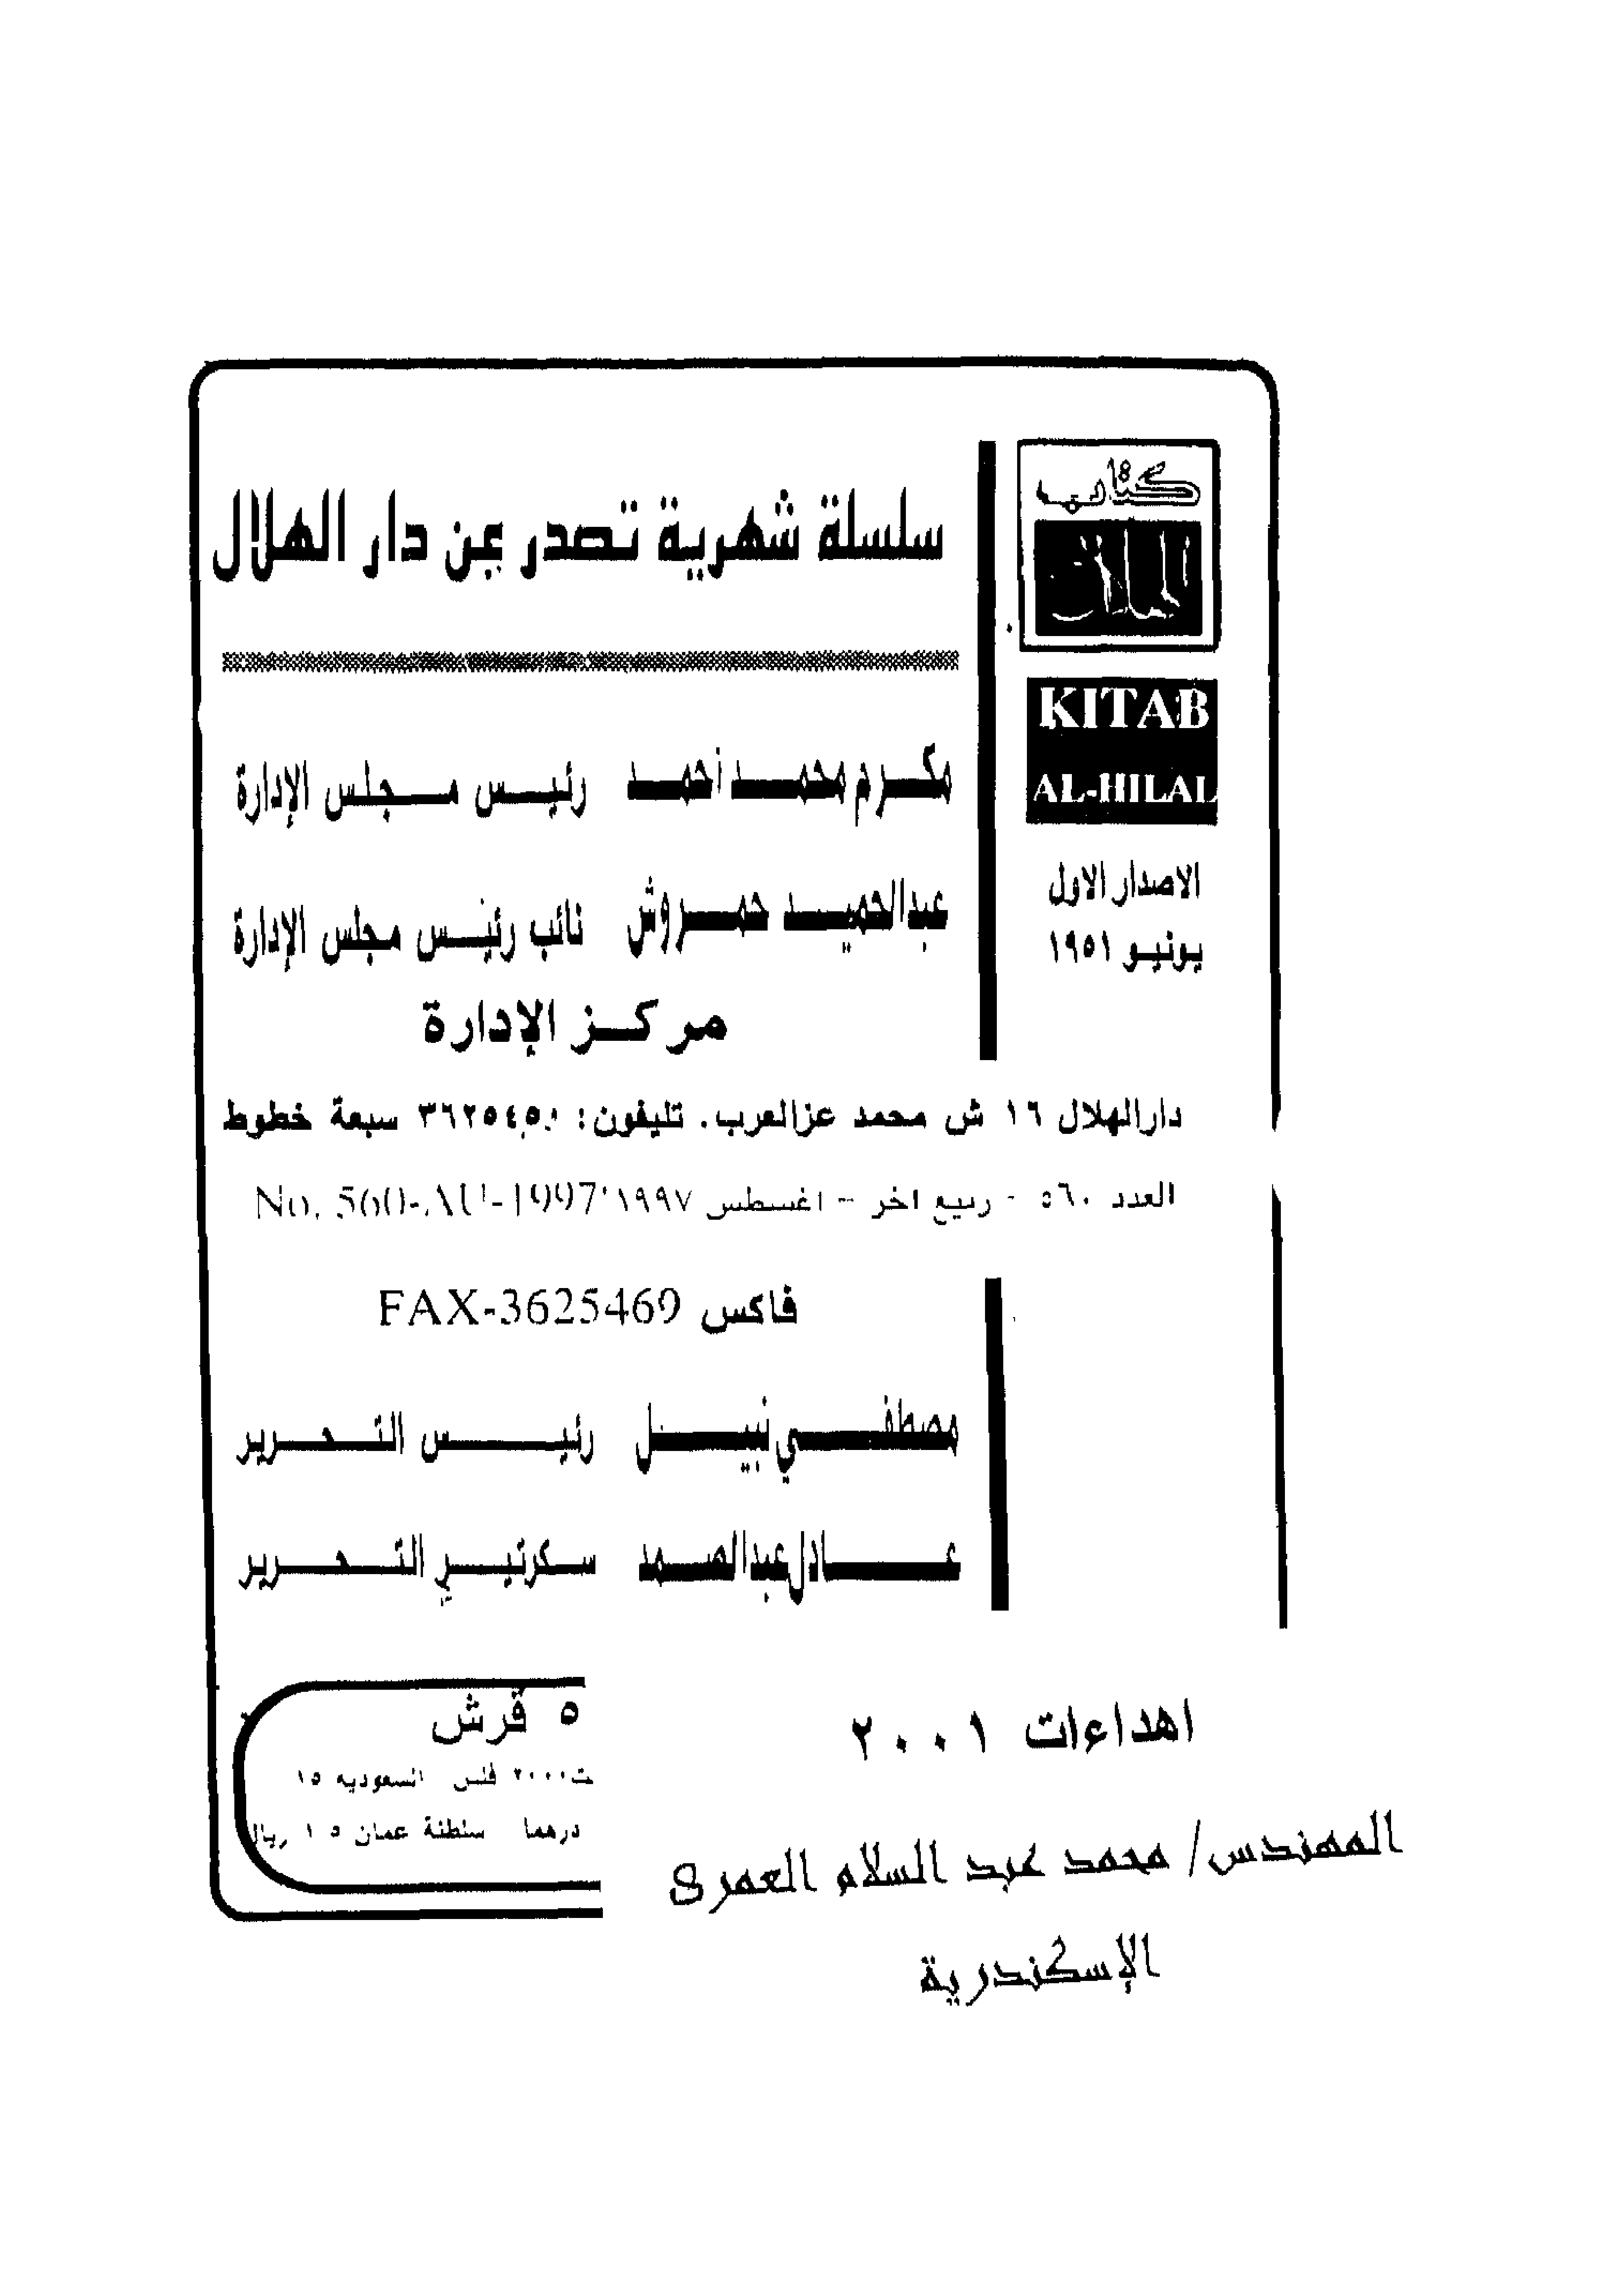 كتاب
الهلال
KITAB
AL-HILAL
الاصدار الاول
يونيو ١٩٥١
سلسلة شهرية تصدر عن دار الهلال
مكرم محمد أحمد رئيس مجلس الإدارة
عبدالحميد حمروش نائب رئيس مجلس الإدارة
مركز الإدارة
دارالهلال ١٦ ش محمد عزالعرب. تليفون: ٣٦٢٥٤٥٠ سبعة خطوط
العدد ٥٦٠ - ربيع اخر - اغسطس ١٩٩٧ No. 560-AU-1997
فاكس FAX-3625469
مصطفي نبيل رئيس التحرير
عادل عبدالصمد سكرتير التحرير
٥ قرش
٢٠٠٠ فلس السعوديه ١٥
درهما سلطنة عمان ١٫٥ ريال
اهداءات ٢٠٠١
المهندس/ محمد عبد السلام العمرى
الإسكندرية